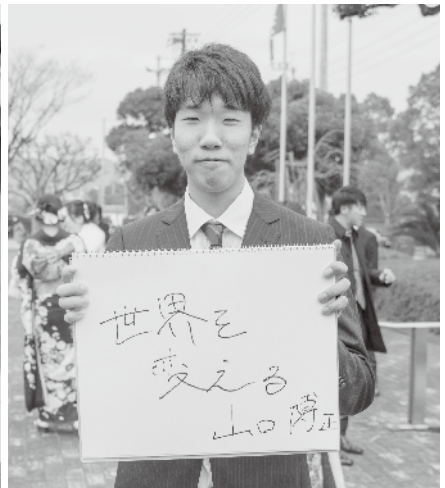 世界を
変える
山口